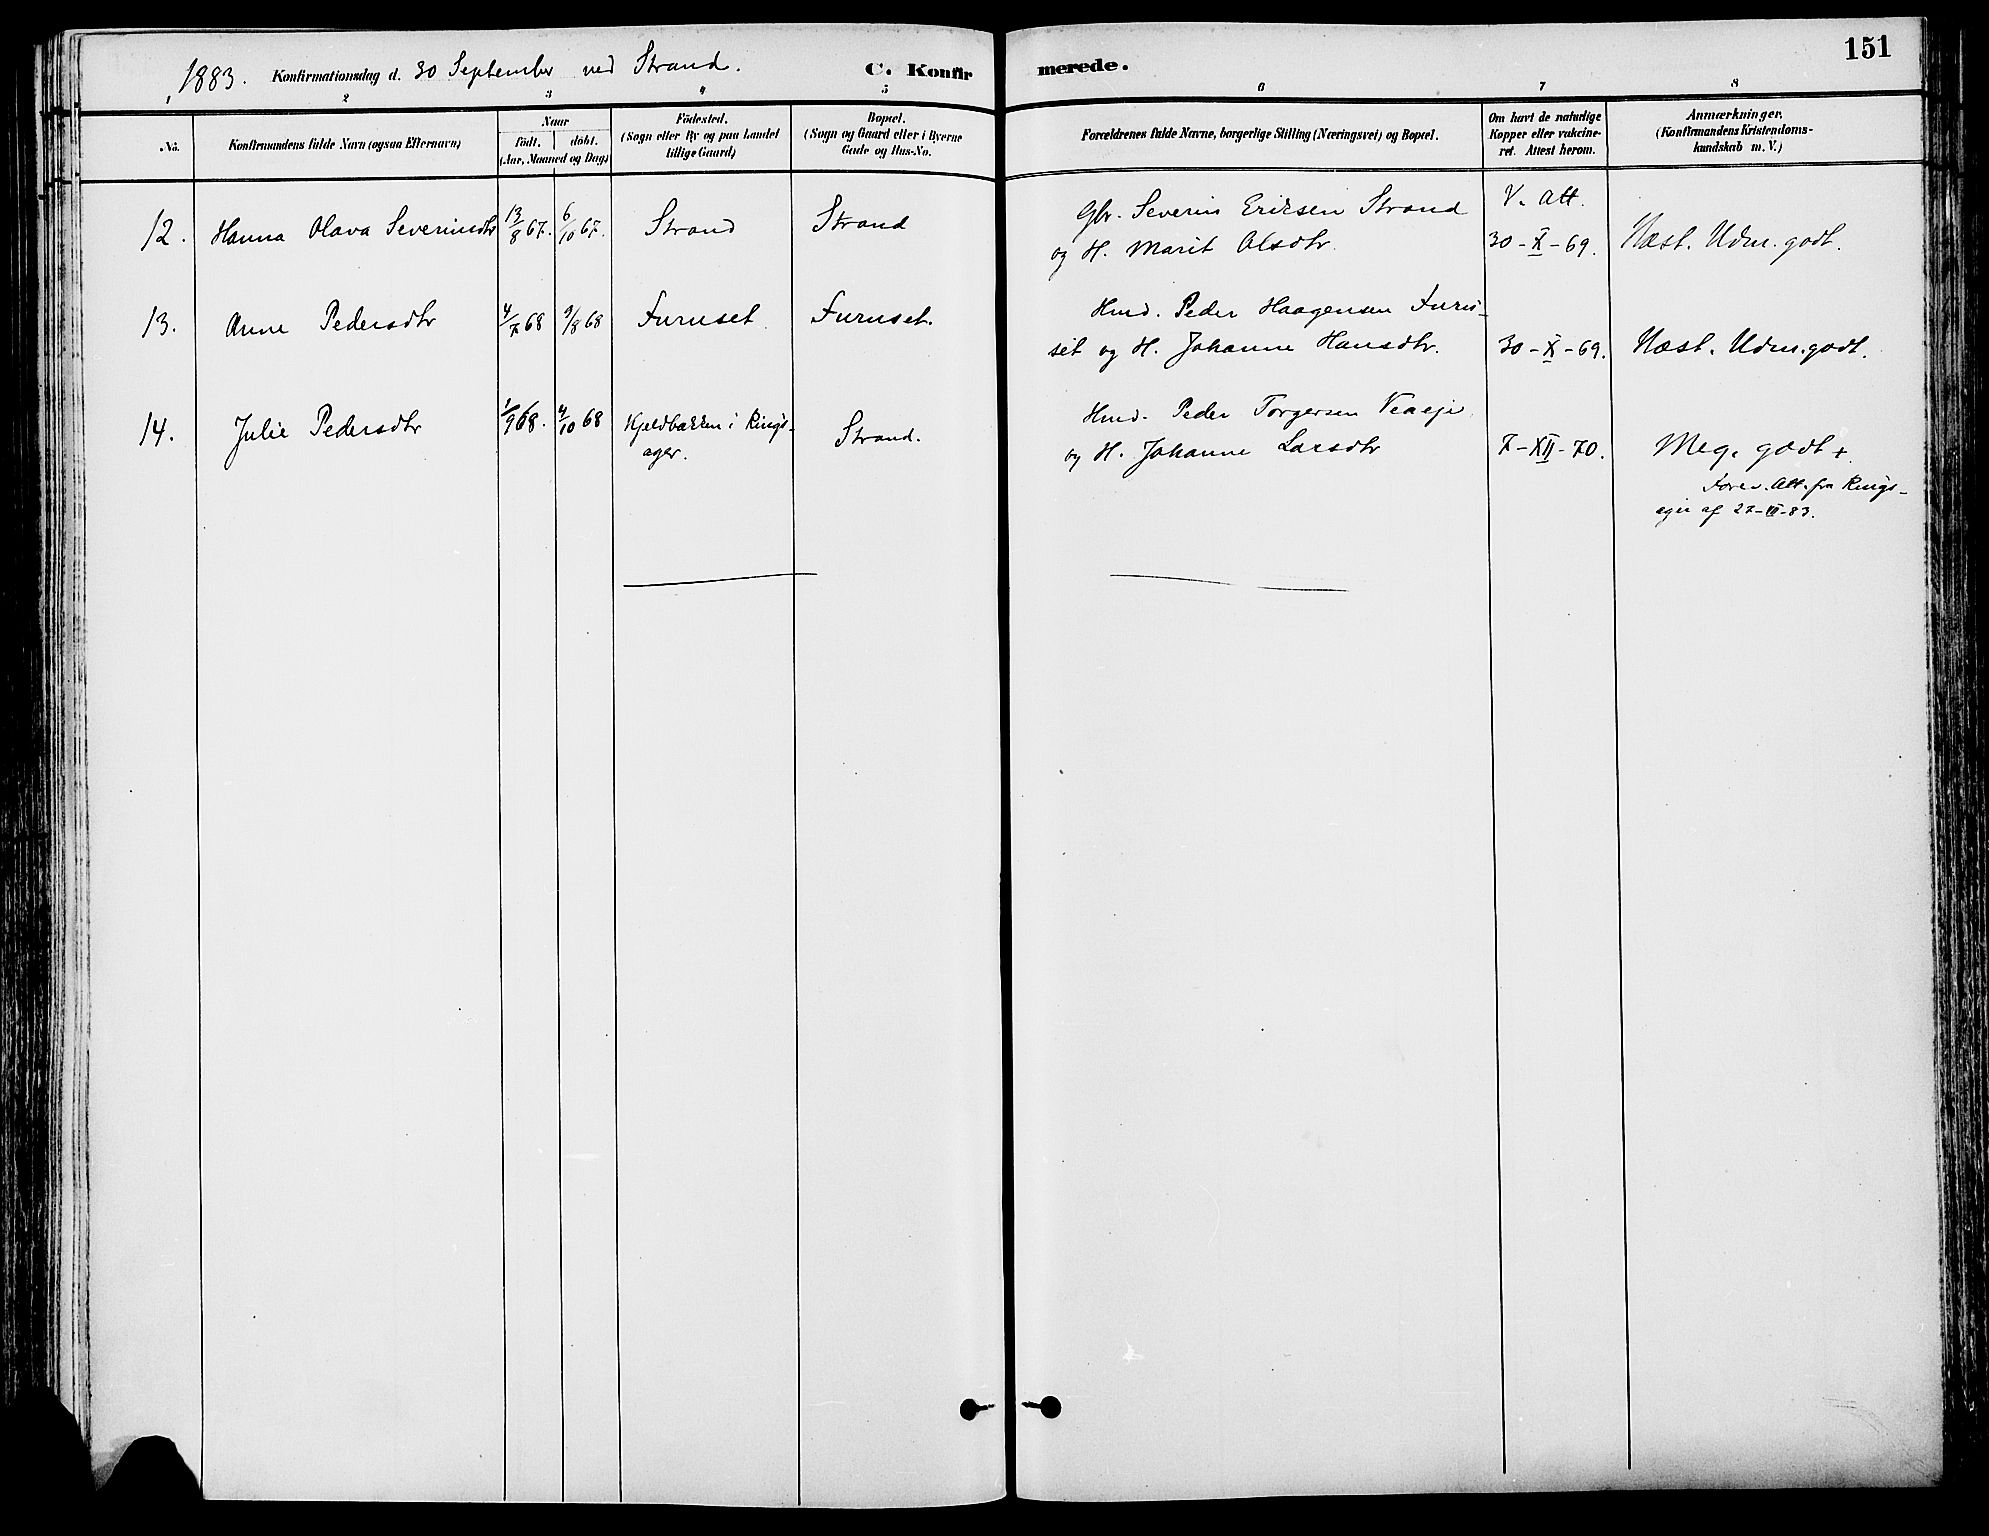 1883. Konfirmationsdag d. 30 September ved Strand.
C. Konfirmerede.
151
1 2 3 4 5 6 7 8
No.
Konfirmandens fulde Navn (ogsaa Efternavn)
Naar
født. døbt.
(Aar, Maaned og Dag)
Födested.
(Sogn eller By og paa Landet
tillige Gaard)
Bopæl.
(Sogn og Gaard eller i Byerne
Gade og Hus-No.
Forældrenes fulde Navne, borgerlige Stilling (Næringsvei) og Bopæl.
Om havt de naturlige
Kopper eller vakcine-
ret. Attest herom.
Anmærkninger.
(Konfirmandens Kristendoms-
kundskab m. V.)
12. Hanna Olava Severinsdtr 13/8 67. 6/10 67. Strand Strand Gbr. Severin Eriksen Strand
og H. Marit Olsdtr. V. Att.
30-X-69. Næst. Udm. godt.
13. Anne Pedersdtr 4/7 68 9/8 68 Furuset Furuset. Hmd. Peder Haagensen Furu-
set og H. Johanne Hansdtr. 30-X-69. Næst. Udm. godt.
14. Julie Pedersdtr 1/9 68. 4/10 68 Kjeldbakken i Rings-
ager. Strand. Hmd. Peder Torgersen
og H. Johanne Larsdtr 7-XII-70. Meg. godt +.
Att. fra Rings-
ager af 83.